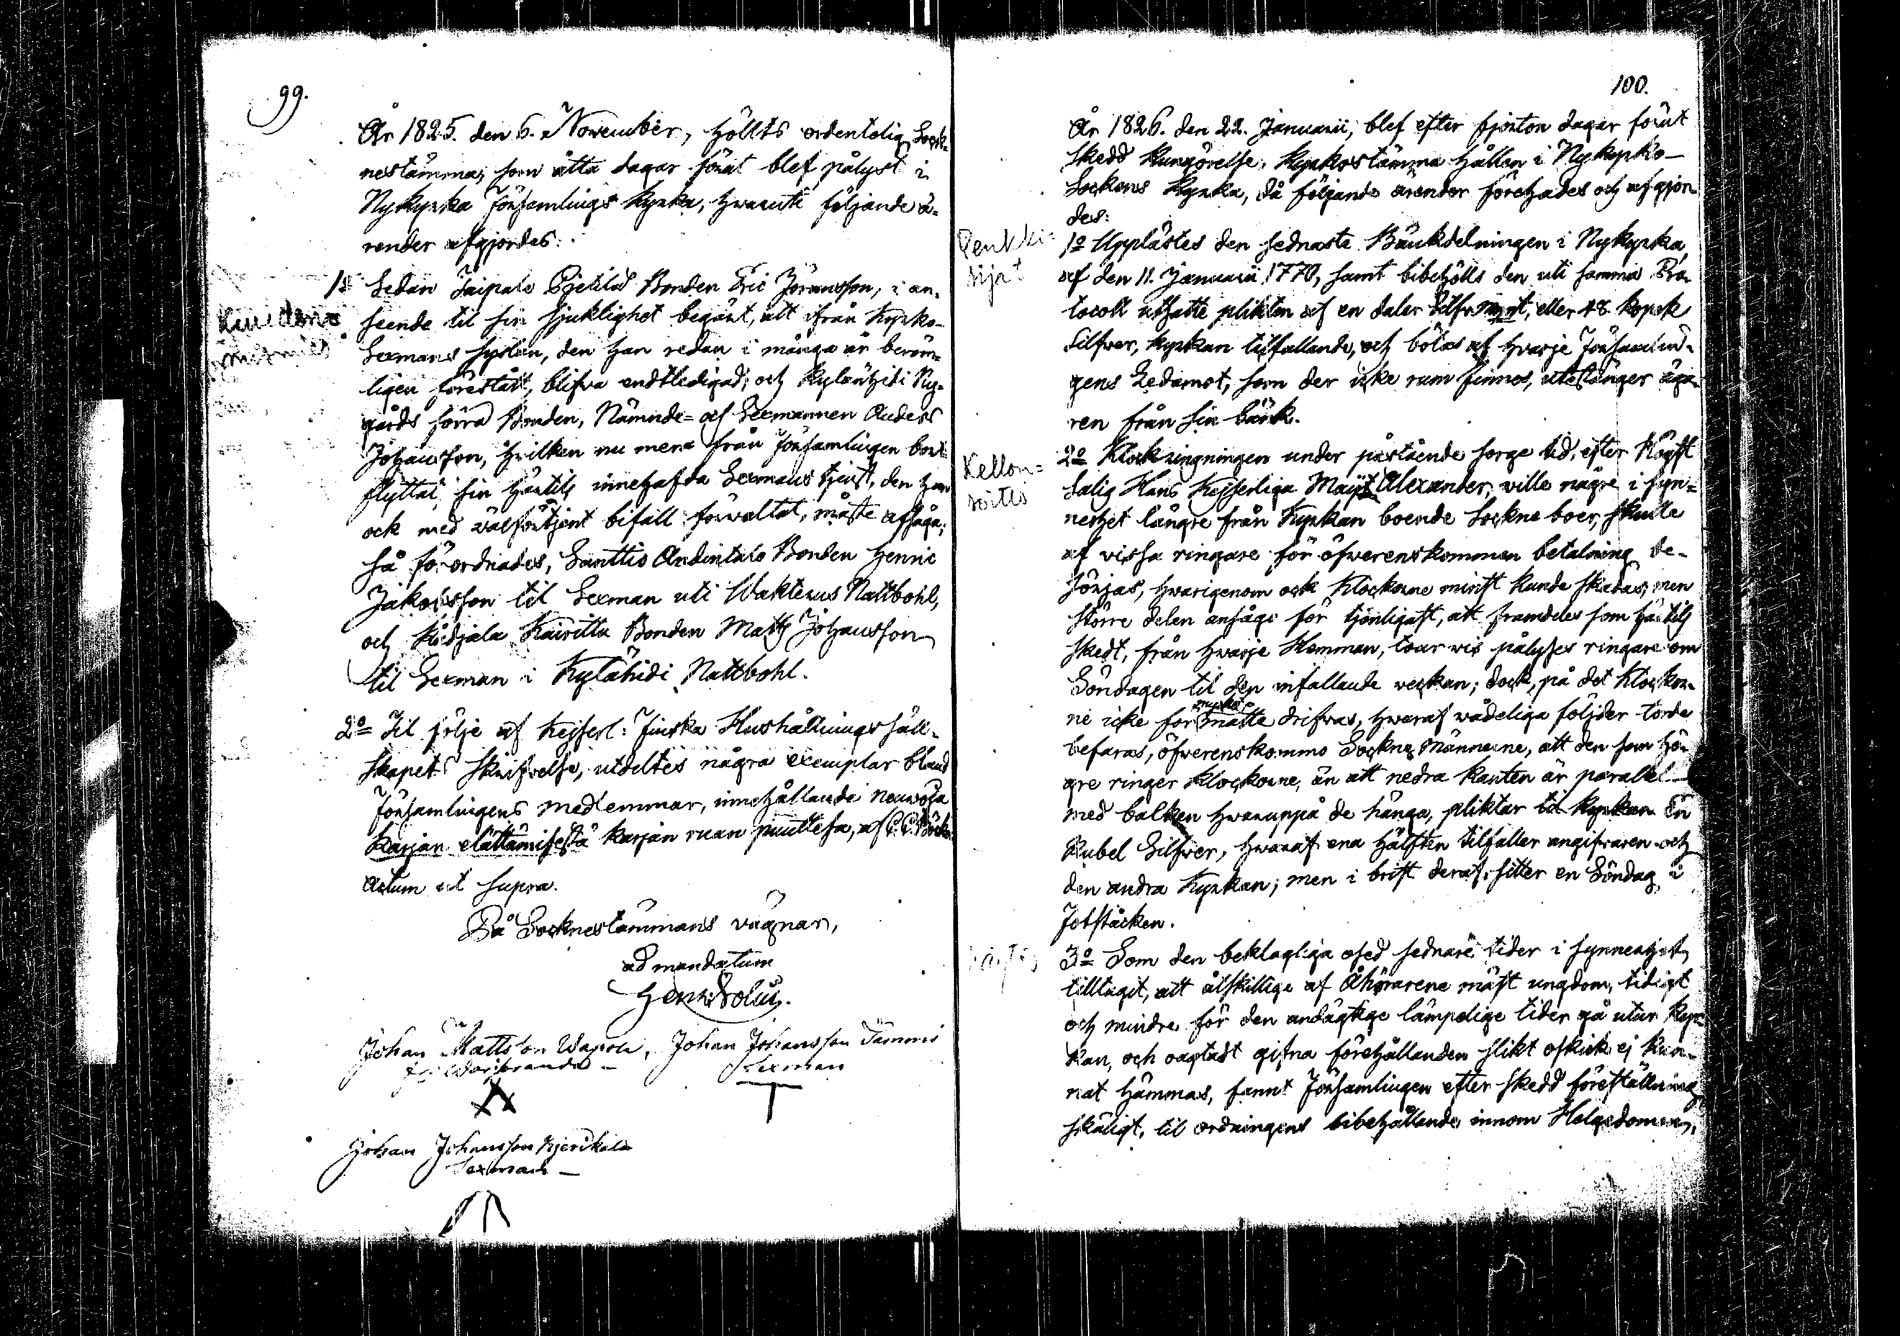 99.
År 1825. den 6. November, hölts ordentelig Sock-
nestämma, som åtta dagar förut blef pålyst i
Nykyrka Församlings Kyrka, hvaruti följande ä-
render afgjordes:
1o Sedan Bonden Eric Jöransson, i an-
seende til sin sjuklighet begärt, att ifrån Kyrko-
Sexmans sysslan, den han redan i många år beröm-
ligen förestått, blifva endtledigad; och Kyläthidi Ny-
gårds förra Bonden, Nämnde- och Sexmannen Anders
Johansson, hvilken nu mera från Församlingen bort
flyttat, sin härtils innehafda Sexmans tjenst, den han
ock med välförtjent bifall förvaltat, måste afsäga;
så förordnades, Bonden Henric
Jakobsson til Sexman uti Nattbohl,
och Bonden Matts Johansson
til Sexman i Kylähidi Nattbohl.
2o Til följe af Kejserl: Finska Hushållnings Säll-
skapets Skrifvelse, utdeltes några exemplar bland
Församlingens medlemmar, innehållande neuwoja
karjan elättämisestä karjan ruan puuttesa, af C. C. Böcker
Actum ut supra.
På Socknestämmans vägnar,
ad mandatum
Johan Mattsson Johan Johansson Tammi
Sexman
Johan Johansson
Sexman
100.
År 1826. den 22. Januarii, blef efter fjorton dagar förut
skedd kungörelse, Kyrkostämma hållen i Nykyrko-
Sockens Kyrka, då följande ärender företades och afgjor-
des:
Penkki-
sijat
1o Upplästes den sednaste Bänkdelningen i Nykyrka,
af den 11. Januarii 1770, samt bibehölls den uti samma Pro-
tocoll utsatte plikten af en daler Silfvermynt, eller 48 kopek
Silfver, Kyrkan tilfallande, och bötas af hvarje Försam-
gens Ledamot, som der icke rum finnes, utestänger äga-
ren från sin bänk.
Kellon=
soitto
2o Klockringningen under påstående sorge tid, efter Högst
Salig Hans Kejserliga Majt Alexander, ville någre i syn-
nerhet längre från Kyrkan boende Sockne boer, skulle
af vissa ringare för öfverenskommen betalning be-
sörjas, hvarigenom ock Klockorne minst kunde skadas; men
större delen ansågo för tjenligast, att framdeles som härtils
skedt, från hvarje Hemman, tour vis pålyses ringare om
Söndagen til den infallande veckan; dock, på det Klockor-
ne icke för mycket måtte drifvas, hvaraf vådeliga följder torde
befaras, öfverenskommo Sockne Männerne, att den som hö-
gre ringer Klockorne, än att nedra kanten är parallel
med balken hvaruppå de hänga, pliktar til Kyrkan En
Rubel Silfver, hvaraf ena hälften tilfaller angifvaren och
den andra Kyrkan; men i brist deraf, sitter en Söndag i
Fotstocken.
3o Som den beklagliga osed sednare tider i synnerhet
tilltagit, att åtskillige af Åhörarena mäst ungdom, tidigt
och mindre för den andägtige lämpelige tider gå utur Kyr-
kan, och oagtadt gifna förehållanden slikt oskick ej kun-
nat hämmas, fant Församlingen efter skedd föreställning
skäligt, til ordningens bibehållande innom Helgedomen,